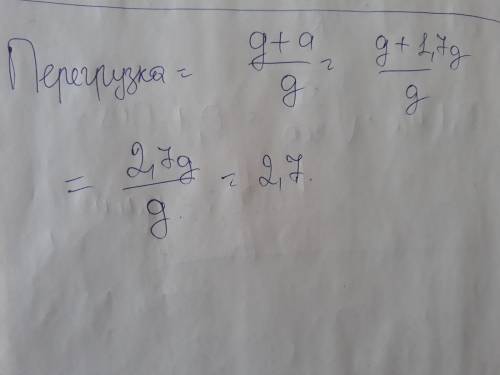 Перегрузка = (g+a)/g = (g+1,7g)/g
= 2,7g/g = 2,7.